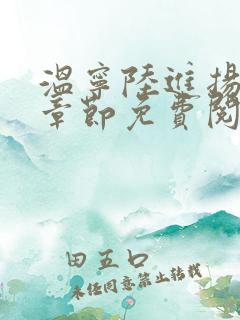 溫寧陸進揚
章節免費閱
田五口
未经同意禁止转载